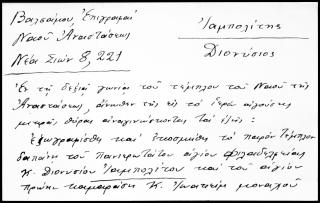 Βαλσάμου, Ἐπιγραφαὶ
Ναοῦ Ἀναστάσεως
Νέα Σιών 8, 221
Ἰαμπολίτης
Διονύσιος
Ἐν τῇ δεξιᾷ γωνίᾳ τοῦ τέμπλου τοῦ Ναοῦ τῆς
Ἀναστάσεως, ἄνωθεν τῆς εἰς τὸ ἱερὸν ἀγούσης
μικρᾶς θύρας ἀναγινώσκονται τὰ ἑξῆς:
Ἐζωγραφίσθη καὶ ἐκοσμήθη τὸ παρὸν τέμπλον
δαπάνῃ τοῦ πανιερωτάτου ἁγίου Φιλαδελφείας
Κ. Διονυσίου Ἰαμπολίτου καὶ τοῦ ἁγίου
πρώην καμαράση Κ. Ἰωακεὶμ μοναχοῦ